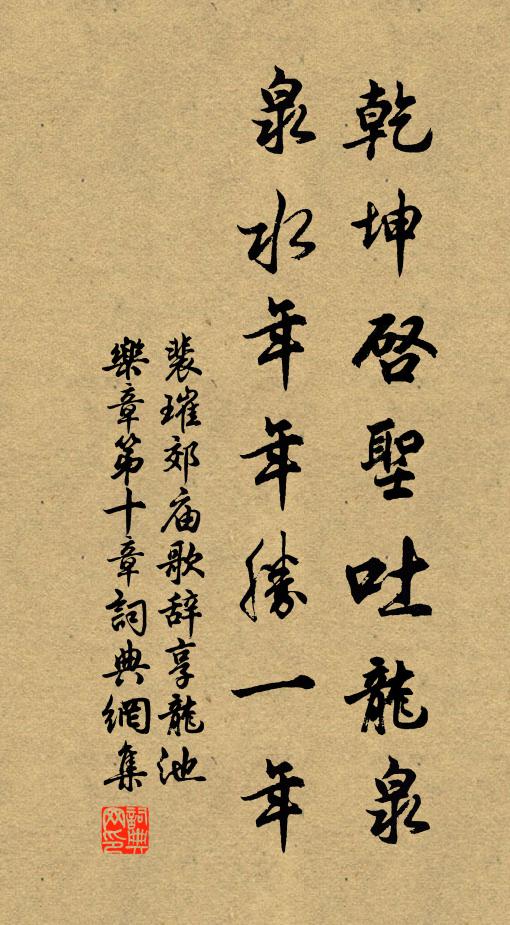 乾坤啓聖吐龍泉
泉水年年勝一年
裴璀郊庙歌辞享龍池
樂章第十章詞典網集
詞典网印